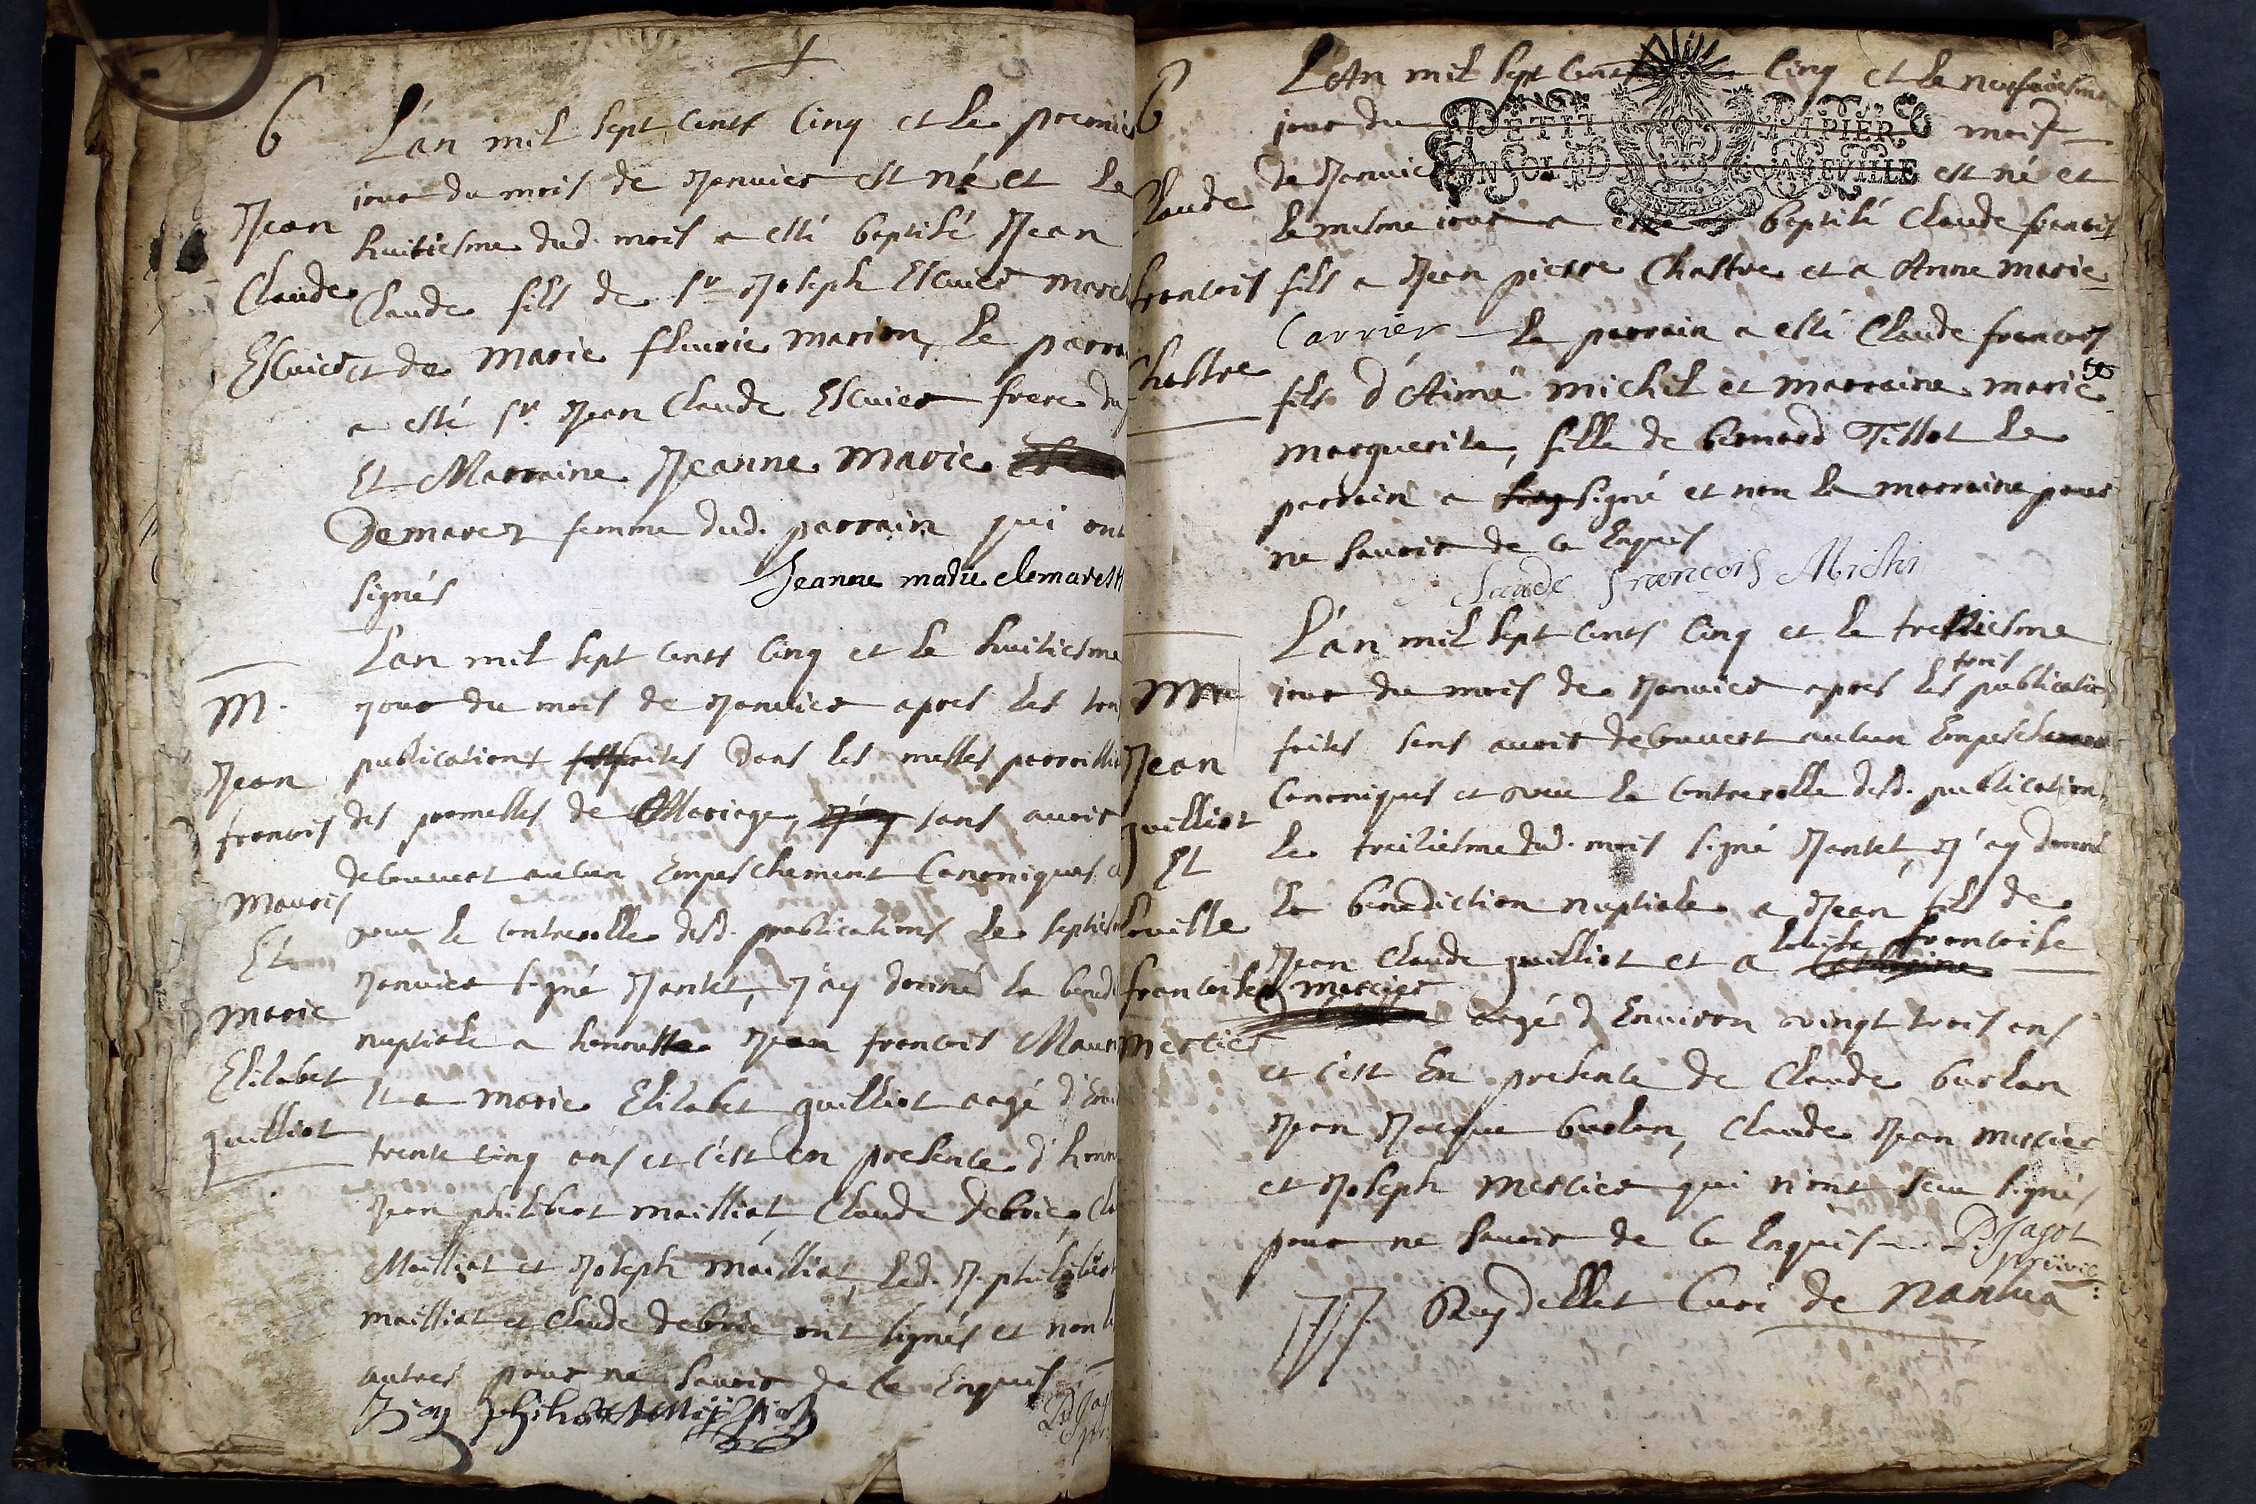 B
Jean
Claude
Escuier
L'an mil sept cents cinq et le premie
jour du mois de Janvier est né et le
huitiesme dud. mois a esté baptisé Jean
Claude fils de Sr Joseph Escuier march
et de Marie fleurie marion, le parra
a esté Sr. Jean Claude Escuier frere du
Et Marraine Jeanne Marie
Demarez femme dud. parrain qui ont
signés
Jeanne marie demarest
M.
Jean
francois
Mauris
Et
Marie
Elisabet
guilliot
L'an mil sept cents cinq et le huitiesme
jour du mois de Janvier apres les troi
publications faites dans les messes parroissi
des promesses de Mariage, j'ay sans avoir
decouvert aucun Empeschement Canoniques e
veu le controlle desd. publications le septies
Janvier signé Jantet, j'ay donné la bened
nuptiale a honneste Jean francois Mauri
et a marie Elisabet guilliot aagé d'Envi
trente cinq ans et c'est en presence d'honn
Jean philibert mailliat, Claude debrie, Cla
Mailliat et Joseph mailliat, led. J. philibert
mailliat et Claude debrie ont signés et non l
autres pour ne savoir de ce Enquis
Jean philibert Mailliat
B
Claude
francois
Chastre
L'An mil sept cents cinq et le neufviesme
PETIT PAPIER
jour du mois
UN SOL LA FEUILLE
de Janvier est né et
le mesme jour a esté baptisé Claude francois
fils a Jean pierre Chastre et a Anne marie
Carrier le parrain a esté Claude francois
fils d'Aimé michel et marraine marie
marguerite, fille de bernard Tillot le
parrain a signé et non la marraine pour
ne savoir de ce Enquis
Claude François Michi
M
Jean
guilliot
Et
Louisse
francoise
Mercier
L'an mil sept cents cinq et le treziesme
trois
jour du mois de Janvier apres les publication
faites sans avoir decouvert aucun Empeschement
Canoniques et veu le controlle desd. publications
le treiziesme dud. mois signé Jantet, j'ay donné
la benediction nuptiale a Jean fils de
louise francoise
Jean Claude guilliot et a Catherine
mercier aagé d'Environ vingt trois ans
et c'est En presence de Claude burlan
Jean Jacque burlan, Claude Jean mercier
et Joseph mercier qui n'ont sceu signés
pour ne savoir de ce Enquis
P. Jagot
JJ Reydellet Curé de Nantua